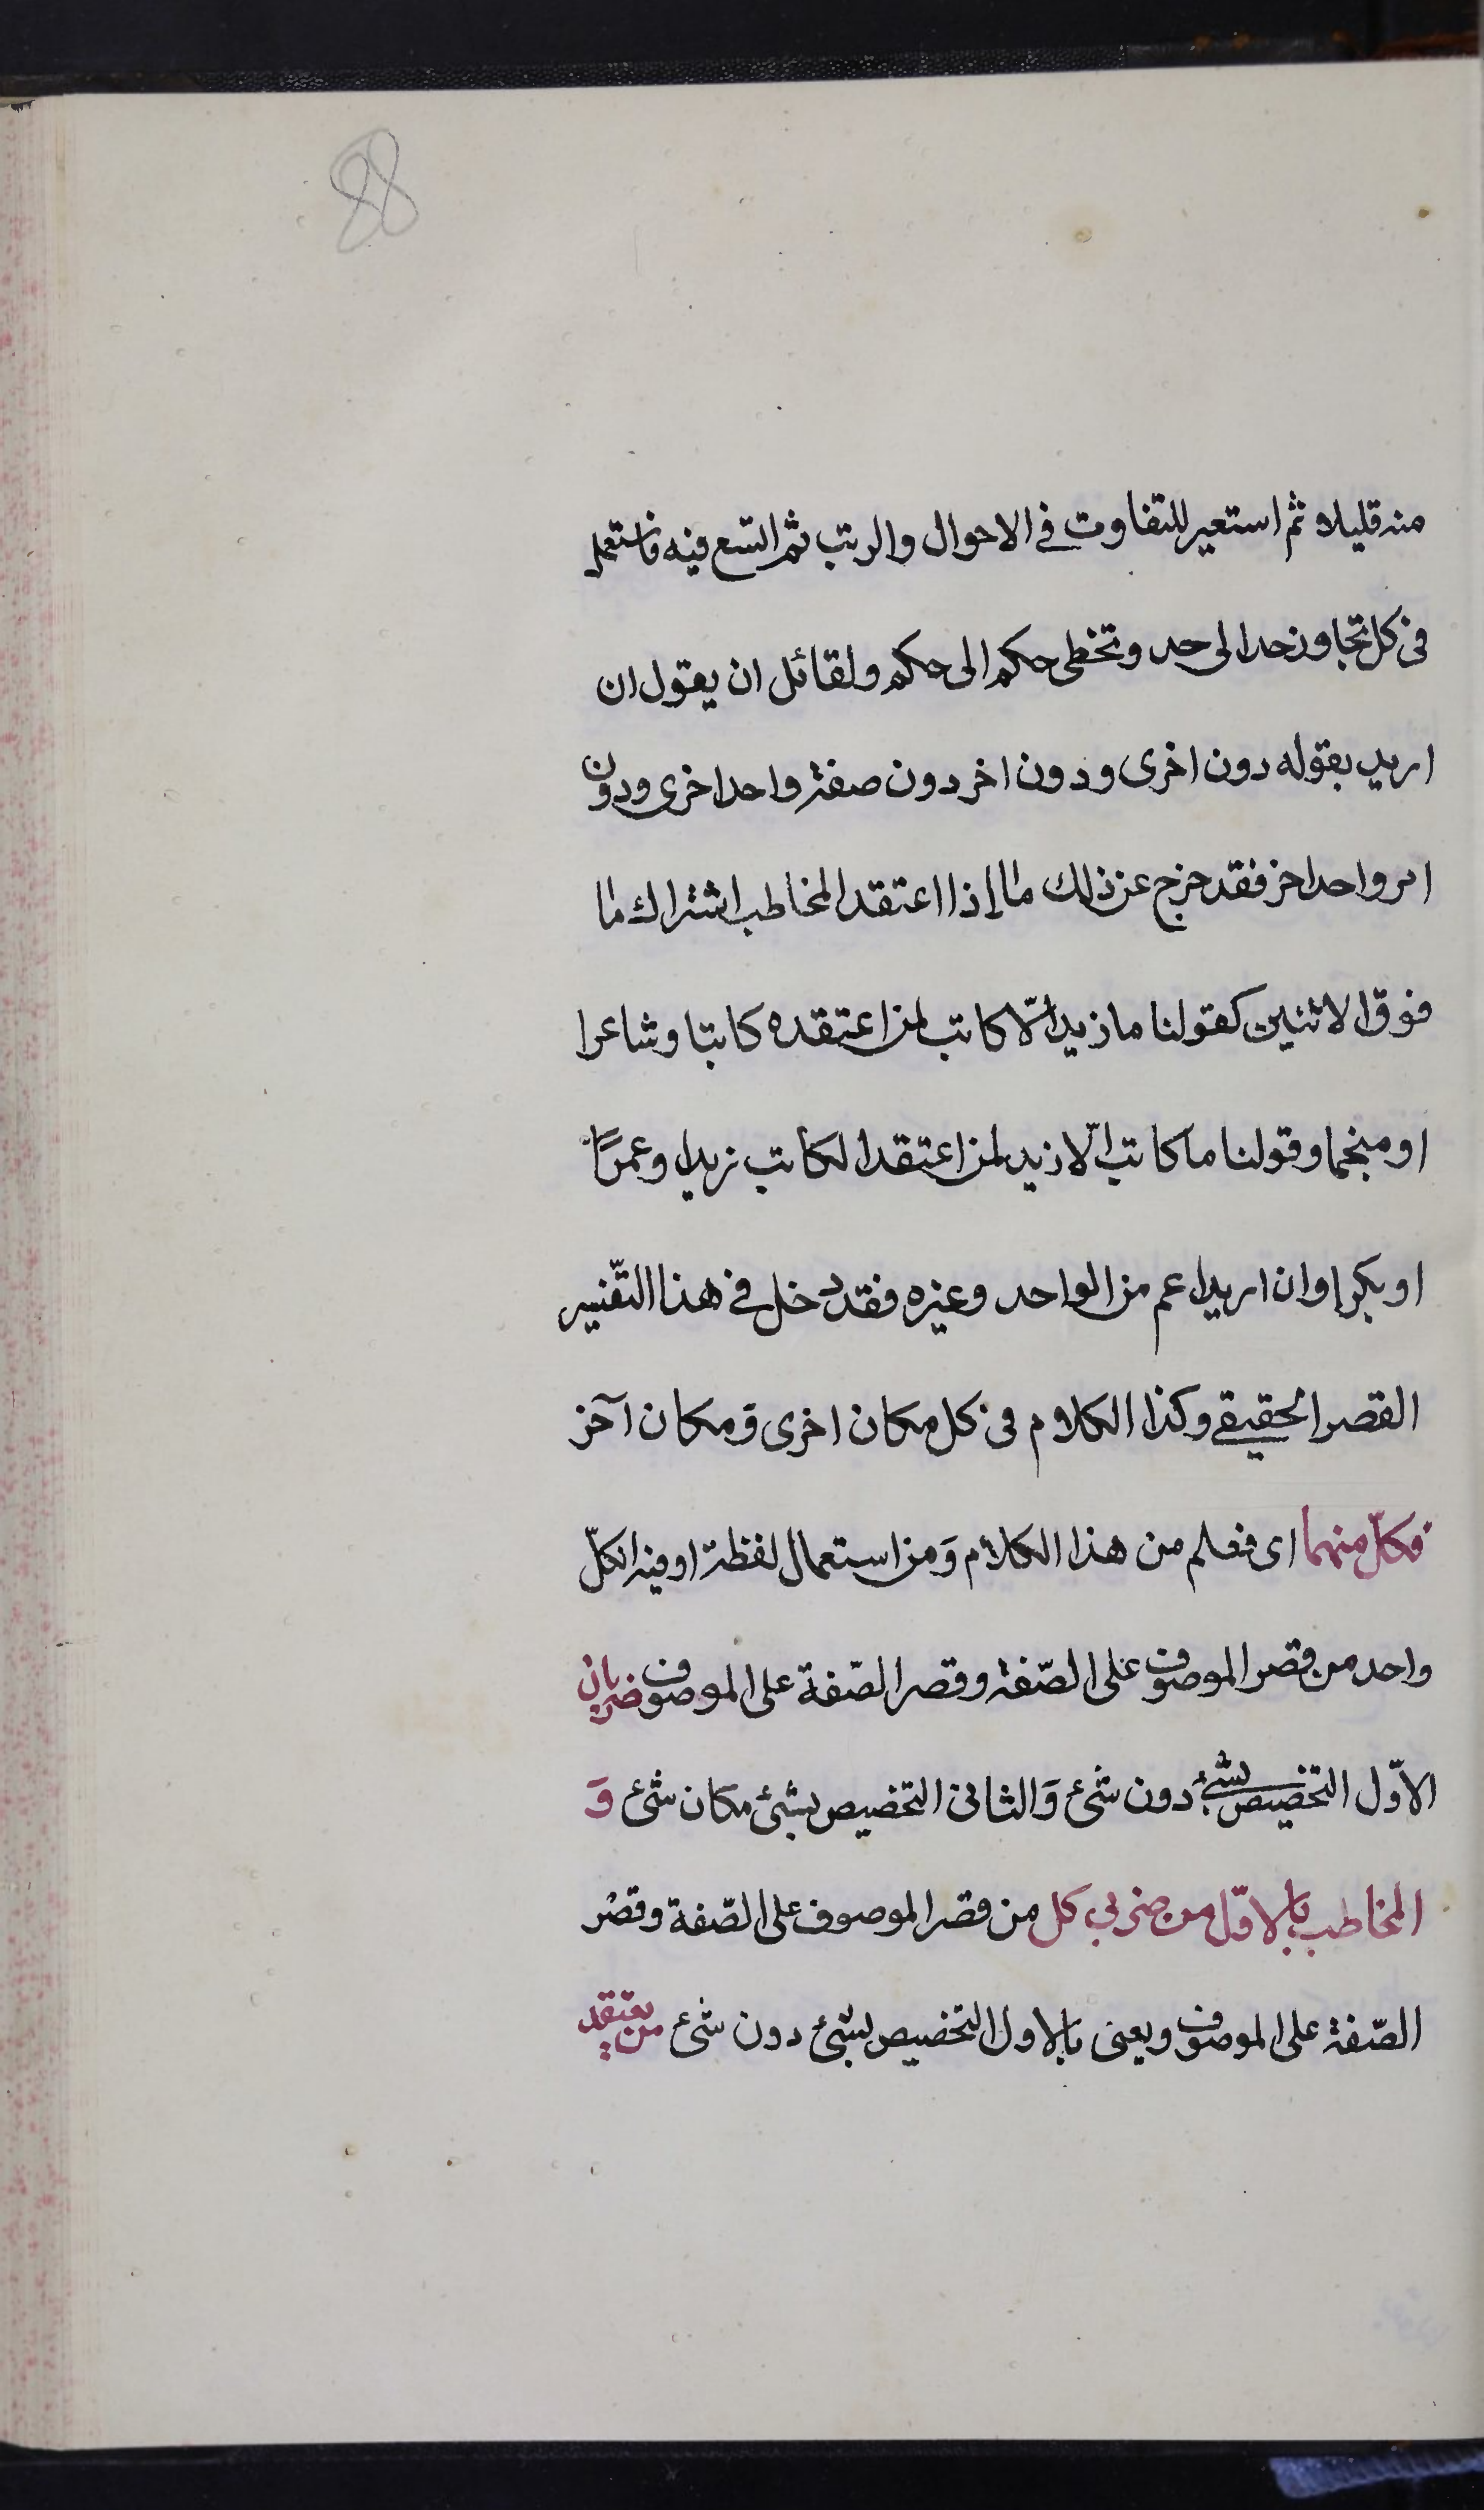 88
منه قليلا ثم استعير للتفاوت في الاحوال والرتب ثم اتسع فيه فاستعمل
فى كل تجاوز حد الى حد وتخطى حكم الى حكم ولقائل ان يقول ان
اريد بقوله دون اخرى ودون اخر دون صفة واحد اخرى ودون
امر واحد اخر فقد خرج عن ذلك ما إذا اعتقد المخاطب اشتراك ما
فوق الاثنين كقولنا ما زيد الّا كاتب لمن اعتقده كاتبا وشاعرا
او منجما وقولنا ما كاتب الّا زيد لمن اعتقد الكاتب زيدا وعمرًا
او بكرا وان اريد اعم من الواحد وغيره فقد دخل في هذا التّفسير
القصر الحقيقي وكذا الكلام فى كل مكان اخرى ومكان آخر
فكلّ منهما اى فعلم من هذا الكلام وَمن استعمال لفظة او فيه انكلّ
واحد من قصر الموصوف على الصّفة وقصر الصّفة على الموصوف ضربان
الاوّل التخصيص بشيء دون شئ وَالثانى التخصيص بشئ مكان شئ وَ
المخاطب بالاوّل من ضربي كل من قصر الموصوف على الصّفة وقصر
الصّفة على الموصوف ويعنى بالاول التخصيص بشئ دون شئ من يعتقد